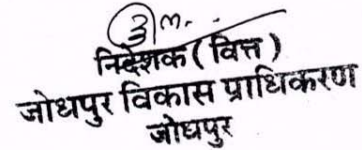 निदेशक (वित्त)
जोधपुर विकास प्राधिकरण
जोधपुर